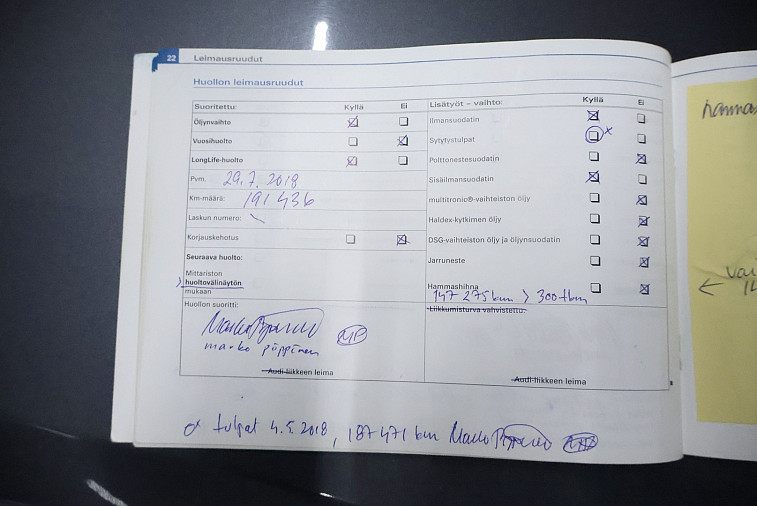 22 Leimausruudut
Huollon leimausruudut
Suoritettu: Kyllä Ei
Öljynvaihto
Vuosihuolto
LongLife-huolto
Pvm. 29.7.2018
Km-määrä: 191 436
Laskun numero:
Korjauskehotus
Seuraava huolto:
Mittariston
huoltovälinäytön
mukaan
Huollon suoritti:
marko piippinen
MP
Audi-liikkeen leima
Lisätyöt – vaihto: Kyllä Ei
Ilmansuodatin
Sytytystulpat x
Polttonestesuodatin
Sisäilmansuodatin
multitronic®-vaihteiston öljy
Haldex-kytkimen öljy
DSG-vaihteiston öljy ja öljynsuodatin
Jarruneste
Hammashihna
147 275km > 300tkm
Liikkumisturva vahvistettu:
Audi-liikkeen leima
x tulpat 4.5.2018, 187 471 km